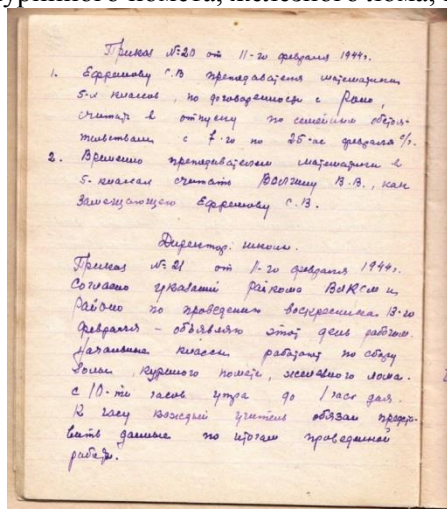 куриного помета, железного лома,
Приказ №20 от 11-го февраля 1944г.
1. Ефремову С.В преподавателя математики
5-х классов, по договоренности с Роно,
считать в отпуску по семейным обстоя-
тельствам с 7-го по 25-ое февраля с/г.
2. Временно преподавателем математики в
5-классах считать Волгину В.В., как
замещающего Ефремову С.В.
Директор школы.
Приказ №21 от 11-го февраля 1944г.
Согласно указаний Райкома ВЛКСМ и
Районо по проведению воскресника 13-го
февраля – объявляю этот день рабочим.
Начальные классы работают по сбору
золы, куриного помета, железного лома.
с 10-ти часов утра до 1 часа дня.
К часу каждый учитель обязан предста-
вить данные по итогам проведенной
работы.